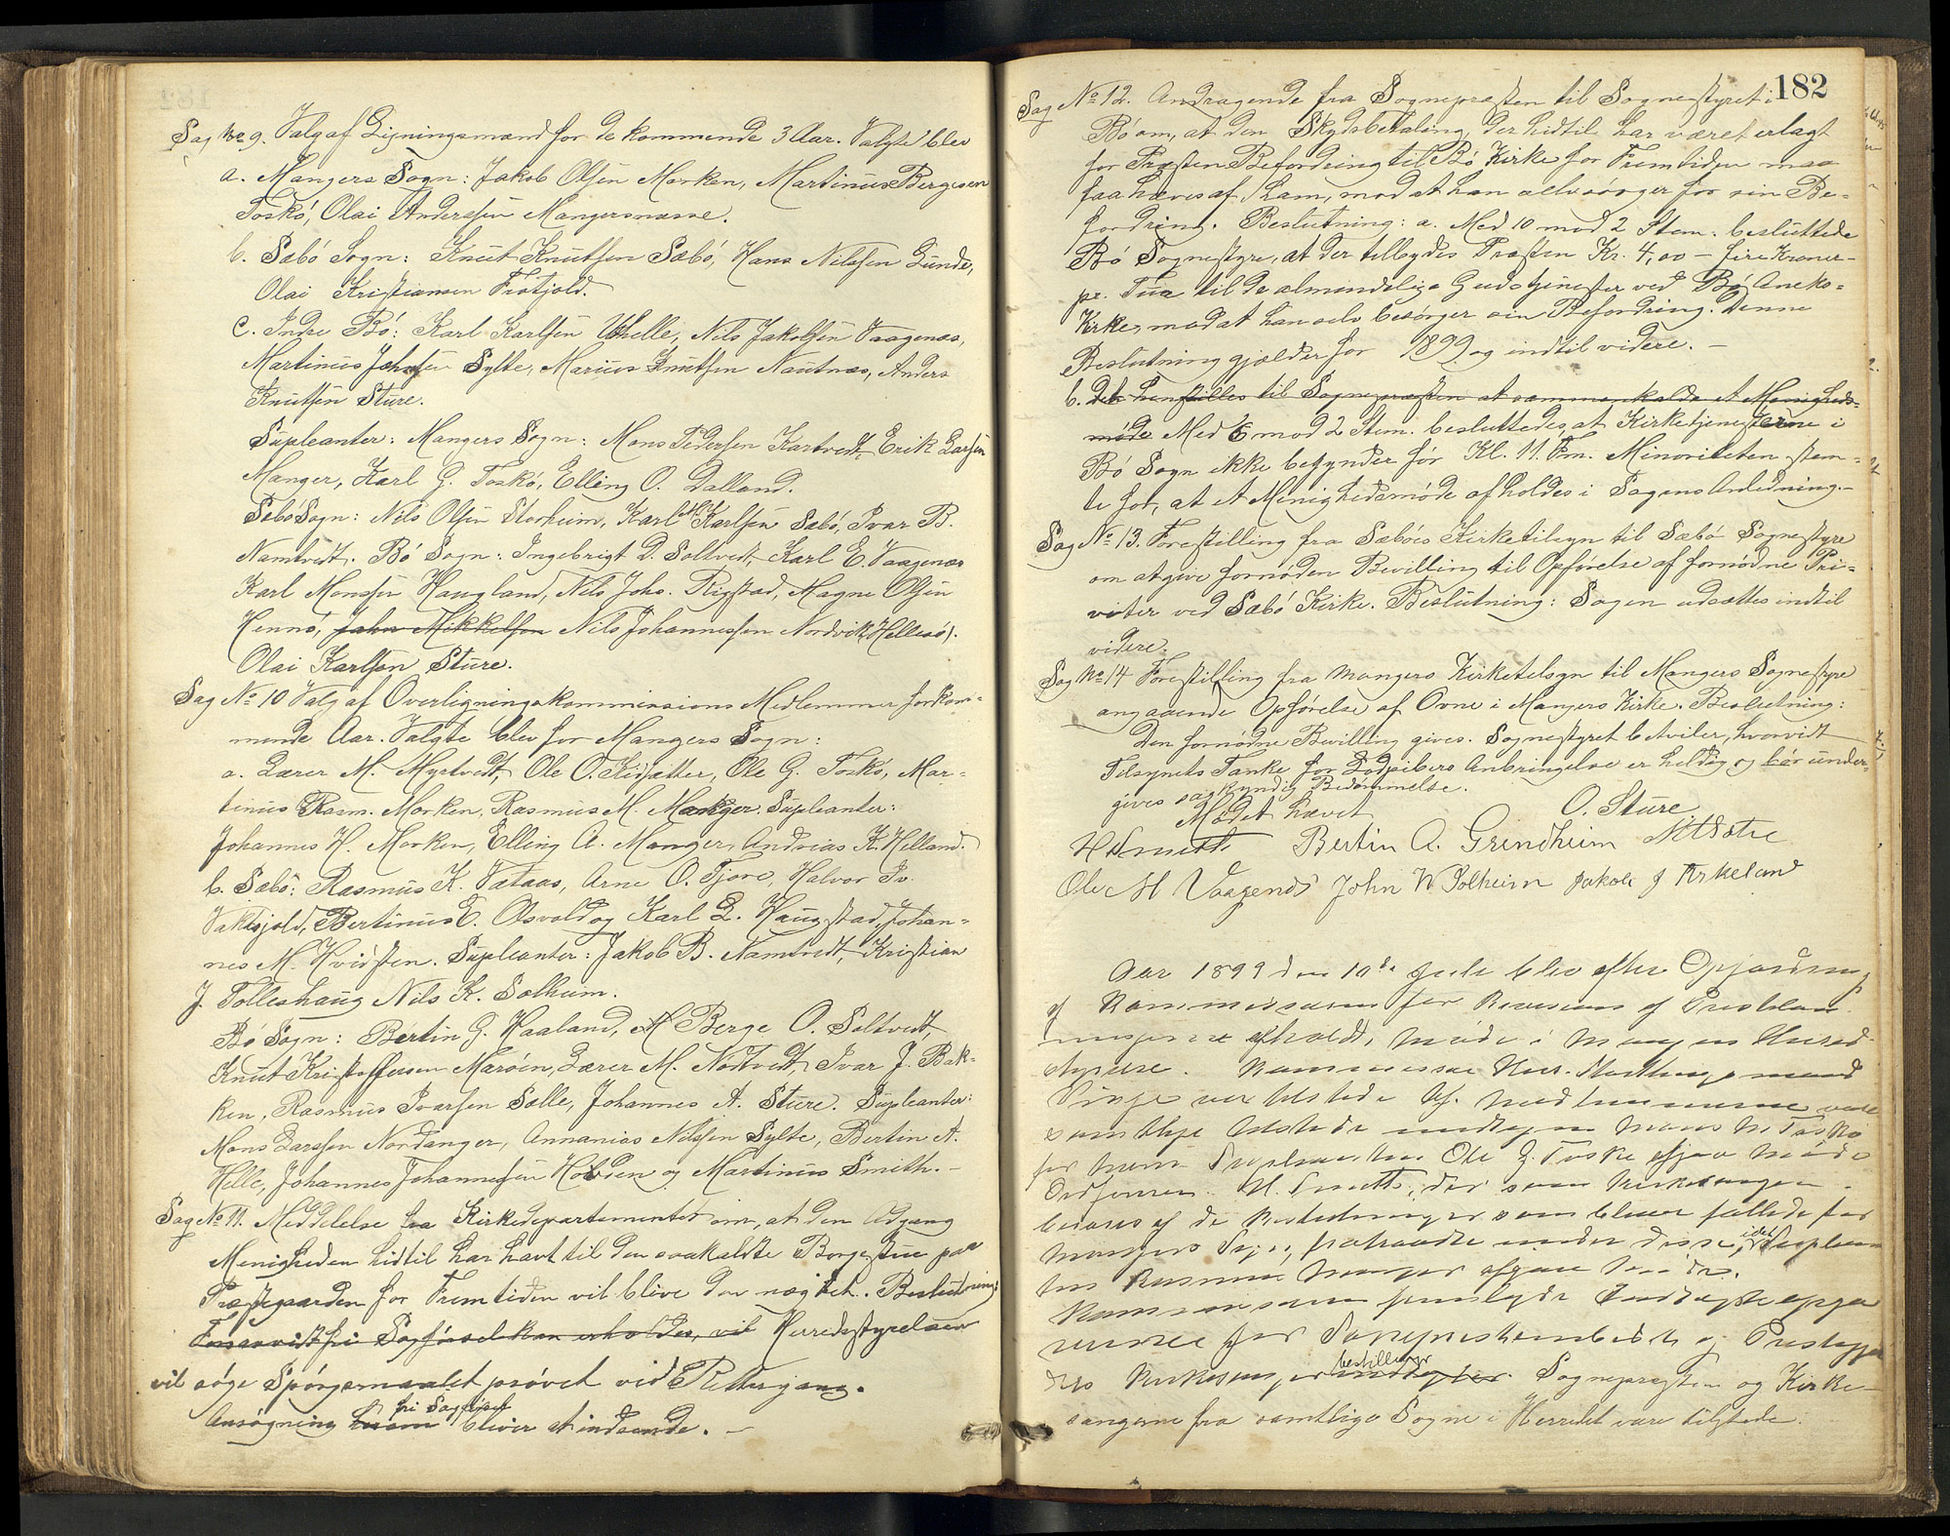 Sag No 9. Valg af Ligningsmænd for de kommende 3 Aar. Valgte blev
a. Mangers Sogn: Jakob Olsen Morken, Martinus Bergesen
Toskö, Olai Anderssen Mangersnæsse.
b. Sæbö Sogn: Knut Knutsen Sæbö, Hans Nilssen Lunde,
Olai Kristiansen Fratjold.
c. Indre Bö: Karl Karlsen Uthelle, Nils Jakobsen Vaagenæs,
Martinus Johsen Sylte, Marius Knutsen Nautnæs, Anders
Knutsen Sture.
Supleanter: Mangers Sogn: Mons Pedersen Kartvedt, Erik Larsen
Manger, Karl G. Toskö, Elling O. Dalland.
Sæbö Sogn: Nils Olsen Storheim, Karl M. Karlsen Sæbö, Ivar B.
Namtvedt. Bö Sogn: Ingebrigt D. Soltvedt, Karl E. Vaagenæs
Karl Monsen Haugland, Nils Johs. Rigstad, Magne Olsen
Hennö, John Mikkelsen Nils Johannessen Nordvik (Hellesö).
Olai Karlsen Sture.
Sag No 10 Valg af Overligningskommissions Medlemmer for kom-
mende Aar. Valgte blev for Mangers Sogn:
a. Lærer M. Myrtvedt, Ole O. Kidsætter, Ole G. Toskö, Mar-
tinus Rasm. Morken, Rasmus M. Manger. Supleanter:
Johannes H. Morken, Elling A. Manger, Andreas K. Helland.
b. Sæbö: Rasmus K. Vataas, Arne O. Fjore, Halvor Iv.
Bertinus E. Olsvold og Karl L. Haugstad, Johan-
nes M. Kvidsten. Supleanter: Jakob B. Namtvedt, Kristian
J. Tolleshaug Nils K. Solheim.
Bö Sogn: Bertin G. Haaland, M Berge O. Soltvedt
Knut Kristoffersen Maröen, Lærer M. Nodtvedt, Ivar J. Bak-
ken, Rasmus Ivarsen Solle, Johannes A. Sture. Supleanter:
Mons Larssen Nordanger, Annanias Nilssen Sylte, Bertin A.
Helle, Johannes Johannessen Hobden og Martinus Smith. -
Sag No 11. Meddelelse fra Kirkedepartementet om, at den Adgang
Menigheden hidtil har havt til den saakaldte Borgestue paa
Præstegaarden for Fremtiden vil blive den nægtet. Beslutning:
Forsaavidt fri Sagförsel kan erholdes, vil Herredsstyrelsen
vil söge Spörgsmaalet prövet ved Rettergang.
fri Sagförsel
Ansögning herom bliver at indsende. -
182
Sag No 12. Andragende fra Sognepræsten til Sognestyret i
Bö om, at den Skydsbetaling, der hidtil har været erlagt
for Præsten Befordring til Bö Kirke for Fremtiden maa
faa hæves af ham, mod at han selv sörger for sin Be-
fordring. Beslutning: a. Med 10 mod 2 Stem. besluttede
Bö Sognestyre, at der tillægdes Præsten Kr. 4,00 - fire Kroner -
pr. Tur til de almindelige Gudstjenester ved Bö Aneks-
Kirke, mod at han selv besörger sin Befordring. Denne
Beslutning gjælder for 1899 og indtil videre. -
b. Det henstilles til Sognepræsten at sammenkalde et Menigheds-
möde Med 6 mod 2 Stem. besluttedes, at Kirketjenesterne i
Bö Sogn ikke begynder för Kl. 11. Fm. Minoriteten stem-
te for, at et Menighedsmöde afholdes i Sagens Anledning. -
Sag No 13. Forestilling fra Sæbös Kirketilsyn til Sæbö Sognestyre
om at give fornöden Bevilling til Opförelse af fornödne Pri-
veter ved Sæbö Kirke. Beslutning: Sagen udsættes indtil
videre.
Sag No 14 Forestilling fra Mangers Kirketilsyn til Mangers Sognestyre
angaaende Opförelse af Ovne i Mangers Kirke. Beslutning:
Den fornödne Bevilling gives. Sognestyret betviler, hvorvidt
Tilsynets Tanke for Rödpibers Anbringelse er heldig og bör under-
gives sagkyndig Bedömmelse.
Mödet hævet
O. Sture
H Smith Bertin A. Grindheim
Ole M Vaagenes John W Solheim Jakob J Kirkeland
Aar 1899 den 10de Juli blev efter Opfordring
af Kommissæren for Revision af
afholdt möde i Mangers Herred-
styrelse.
var tilstede. Af medlemmerne vare
samtlige tilstede undtagen Mons N. Toskö
for hvem Supleanten Ole G. Toskö afgav möde
Ordföreren H. Smith, der som Kirkesanger
for
Mangers Sogn, fratraadte under disse,
Rasmus Manger
og
bestillinger
Kirkesanger indtægter. Sognepræsten og Kirke-
sangerne fra samtlige Sogne i Herredet vare tilstede.